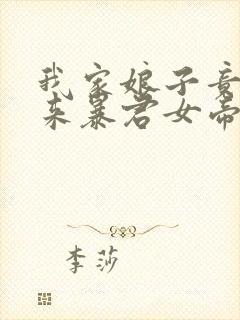 我家娘子竟
来暴君女帝
李莎